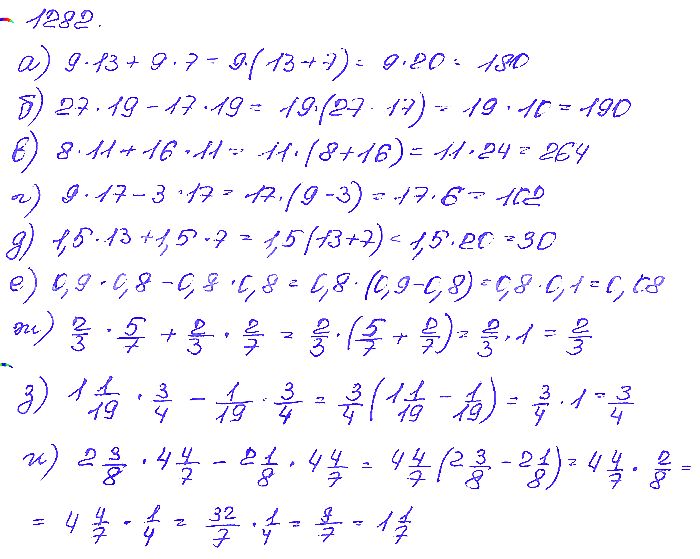 1282.
а) 9·13 + 9·7 = 9·(13+7) = 9·20 = 180
б) 27·19 - 17·19 = 19·(27 - 17) = 19·10 = 190
в) 8·11 + 16·11 = 11·(8+16) = 11·24 = 264
г) 9·17 - 3·17 = 17·(9-3) = 17·6 = 102
д) 1,5·13 + 1,5·7 = 1,5(13+7) = 1,5·20 = 30
е) 0,9·0,8 - 0,8·0,8 = 0,8·(0,9-0,8) = 0,8·0,1 = 0,08
ж) 2/3 · 5/7 + 2/3 · 2/7 = 2/3 · (5/7 + 2/7) = 2/3 · 1 = 2/3
з) 1 1/19 · 3/4 - 1/19 · 3/4 = 3/4 (1 1/19 - 1/19) = 3/4 · 1 = 3/4
и) 2 3/8 · 4 4/7 - 2 1/8 · 4 4/7 = 4 4/7 (2 3/8 - 2 1/8) = 4 4/7 · 2/8 =
= 4 4/7 · 1/4 = 32/7 · 1/4 = 8/7 = 1 1/7